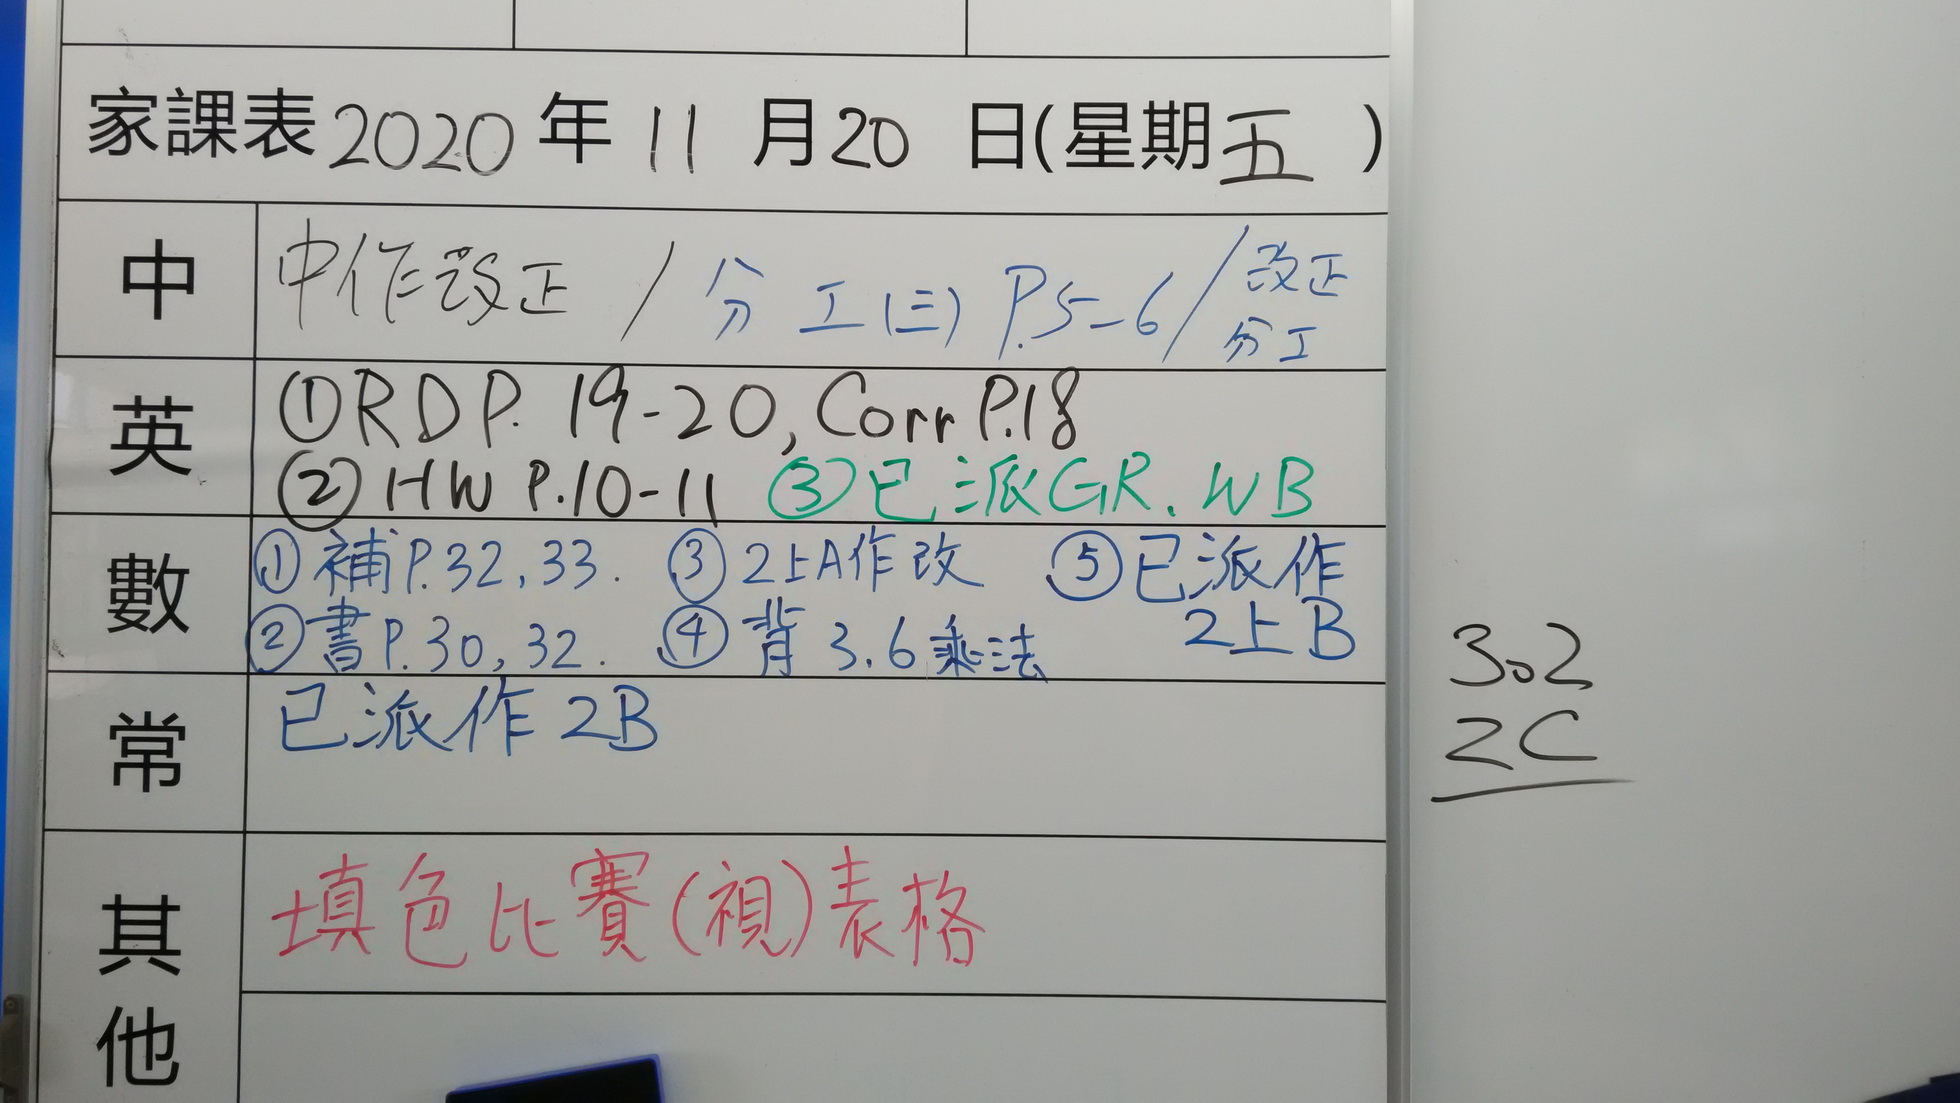 家課表 2020 年 11 月 20 日(星期五)
中 中作改正 / 分工(三) P.5-6 / 改正
分工
英 ①RD P. 19-20, Corr P.18
②HW P.10-11 ③已派GR. WB
數 ①補P.32, 33. ③2上A作改 ⑤已派作
②書P.30, 32. ④背 3.6乘法 2上B
常 已派作 2B
其他 填色比賽(視)表格
302
2C